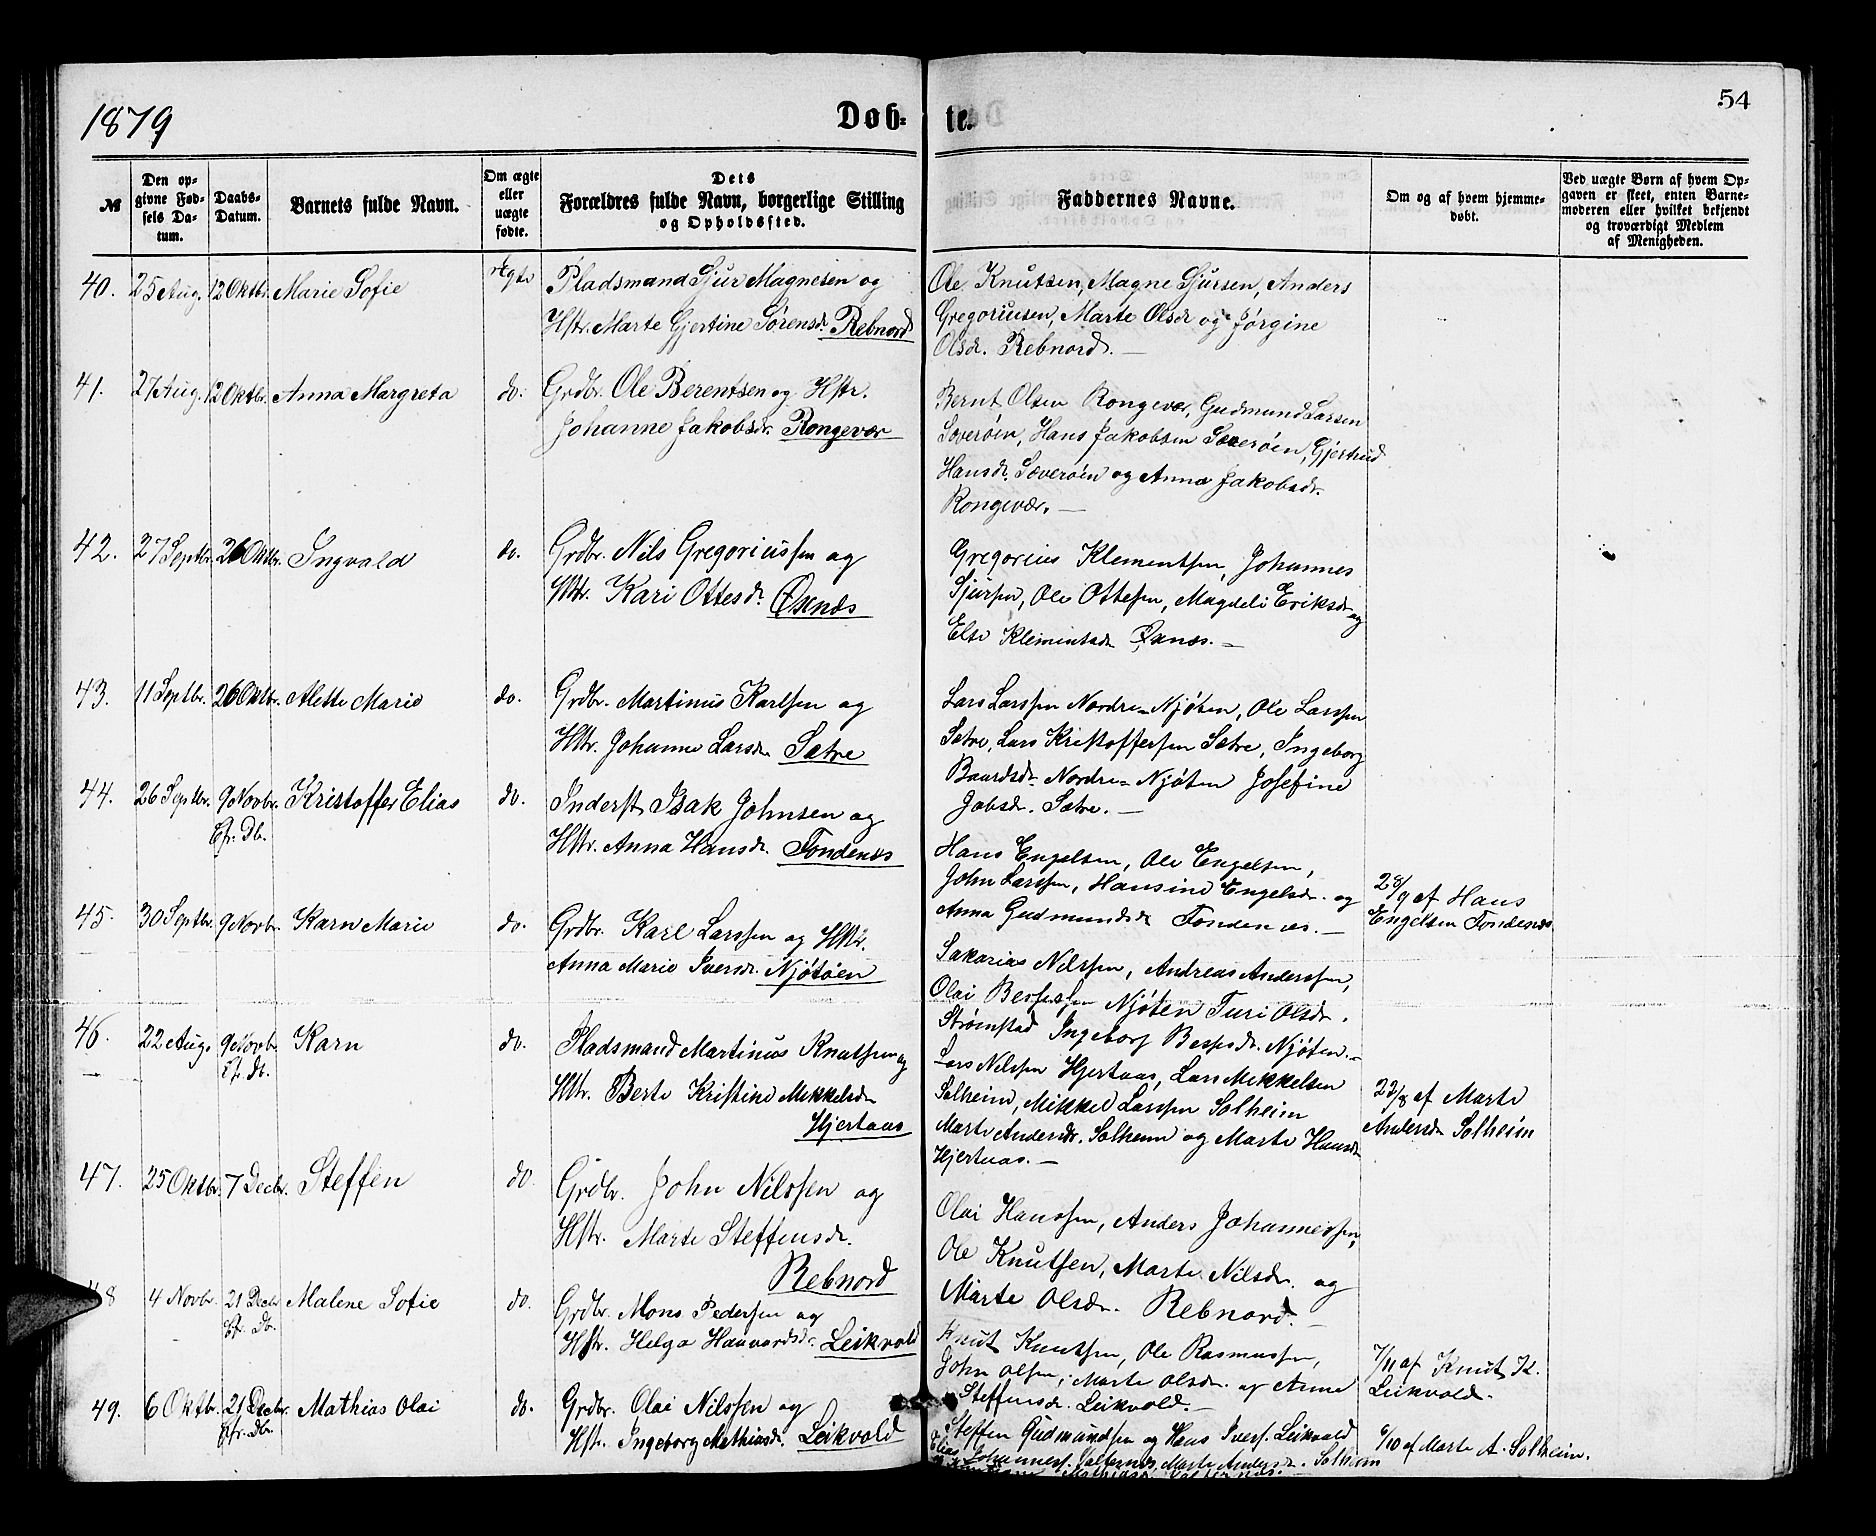 1879
Døb-
te.
54
№
Den op-
givne Fød-
sels Da-
tum.
Daabs-
Datum.
Barnets fulde Navn.
Om ægte
eller
uægte
fødte.
Dets
Forældres fulde Navn, borgerlige Stilling
og Opholdssted.
Faddernes Navne.
Om og af hvem hjemme-
døbt.
Ved uægte Børn af hvem Op-
gaven er skeet, enten Barne-
moderen eller hvilket bekjendt
og troværdigt Medlem
af Menigheden.
40. 25 Aug. 12 Oktbr. Marie Sofie Ægte Pladsmand Sjur Magnesen og
Hstr. Marte Gjertine Sørensdr. Rebnord
Ole Knutsen, Magne Sjursen, Anders
Gregoriusen, Marte Olsdr og Jørgine
Olsdr. Rebnord. —
41. 27 Aug. 12 Oktbr. Anna Margreta do. Grdbr. Ole Berentsen og Hstr.
Johanne Jakobsdr. Rongevær
Bernt Olsen Rongevær, Gudmund Larsen
Soverøen, Hans Jakobsen Sæverøen, Gjertrud
Hansdr. Sæverøen og Anna Jakobsdr.
Rongevær. —
42. 27 Septbr. 26 Oktbr. Ingvald do. Grdbr. Nils Gregoriussen og
Hstr. Kari Ottesdr. Øxnæs
Gregorius Klementsen, Johannes
Sjursen, Ole Ottesen, Magdeli Eriksdr og
Else Klementsdr Øxnæs. —
43. 11 Septbr. 26 Oktbr. Alette Marie do. Grdbr. Martinus Karlsen og
Hstr. Johanne Larsdr. Sætre
Lars Larssen Nordre-Njøten, Ole Larssen
Sætre, Lars Kristoffersen Sætre, Ingeborg
Baardsdr. Nordre-Njøten Josefine
Jobsdr. Sætre. —
44. 26 Septbr. 9 Novbr. Kristoffer Elias do. Inderst Isak Johnsen og
Efr. Db.
Hstr. Anna Hansdr. Fondenes
Hans Engelsen, Ole Engelsen,
John Larssen, Hansine Engelsdr. og
Anna Gudmundsdr Fondenæs. —
28/9 af Hans
Engelsen Fondenæs.
45. 30 Septbr. 9 Novbr. Karn Marie do. Grdbr. Karl Larssen og Hstr.
Anna Marie Iversdr. Njøtøen
Sakarias Nilssen, Andreas Anderssen,
Olai Bessessen Njøten Turi Olsdr.
Strømstad Ingeborg Bessesdr. Njøten. —
46. 22 Aug. 9 Novbr. Karn do. Pladsmand Martinus Knutsen og
Ef. Db.
Hstr. Berte Kristine Mikkelsdr
Hjertaas
Lars Nilssen Hjertaas, Lars Mikkelsen
Solheim, Mikkel Larssen Solheim
Marte Andersdr. Solheim og Marte Hansdr
Hjertaas. —
22/8 af Marte
Andersdr Solheim
47. 25 Oktbr. 7 Decbr. Steffen do Grdbr. John Nilssen og
Hstr. Marte Steffensdr.
Rebnord
Olai Hanssen, Anders Johannessen,
Ole Knutsen, Marte Nilsdr. og
Marte Olsdr. Rebnord. —
48 4 Novbr. 21 Decbr Malene Sofie do. Grdbr. Mons Pedersen og
Ef. Db.
Hstr. Helga Haavardsdr. Leikvold
Knut Knutsen, Ole Rasmussen,
John Olsen, Marte Olsdr. og Anne
Steffensdr. Leikvold. —
7/11 af Knut K.
Leikvold.
49. 6 Oktbr. 21 Decbr. Mathias Olai do. Grdbr. Olai Nilssen og
Efr. Db.
Hstr. Ingeborg Mathiasdr. Leikvold
Steffen Gudmundsen og Hans Ivers. Leikvold
Elias Johanness. Marte Andersdr. Solheim
6/10 af Marte A. Solheim.